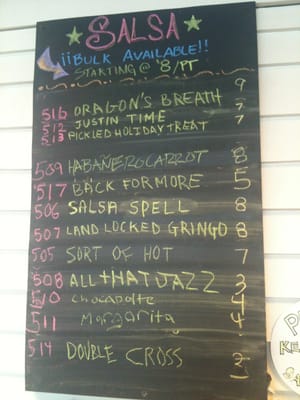 SALSA
¡¡BULK AVAILABLE!!
STARTING @ $8/PT
516 DRAGON'S BREATH 9
512 JUSTIN TIME 7
513 PICKLED HOLIDAY TREAT 7
509 HABAÑERO CARROT 8
517 BACK FOR MORE 5
506 SALSA SPELL 8
507 LAND LOCKED GRINGO 8
505 SORT OF HOT 7
508 ALL THAT JAZZ 3
510 Chocapolte 4
511 Margarita 4
514 DOUBLE CROSS